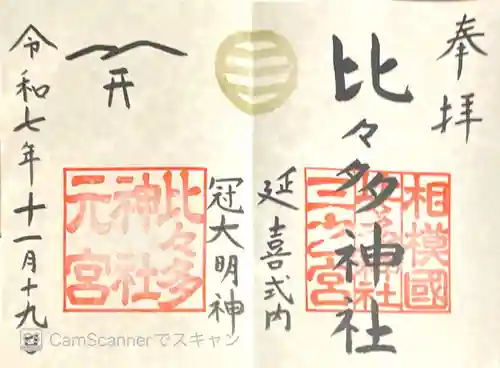 奉拝
比々多神社
相模國
比々多神社
三之宮
延喜式内
冠大明神
比々多
神社
元宮
令和七年十一月十九日
CamScannerでスキャン